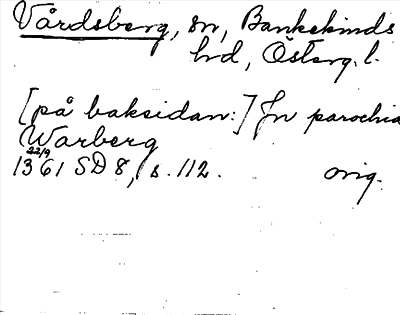 Vårdsberg, sn, Bankekinds
hd, Österg. l.
[på baksidan:] Jn parochia
Warberg
22/9
1361 SD 8, s. 112. orig.